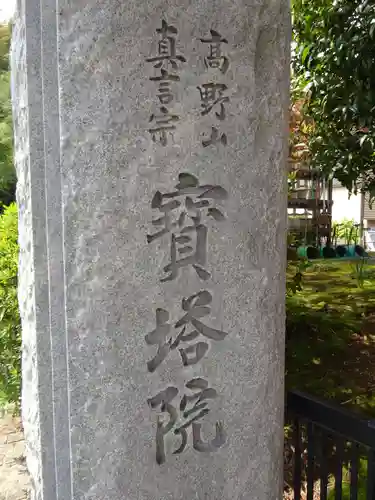 高野山
真言宗
寳塔院